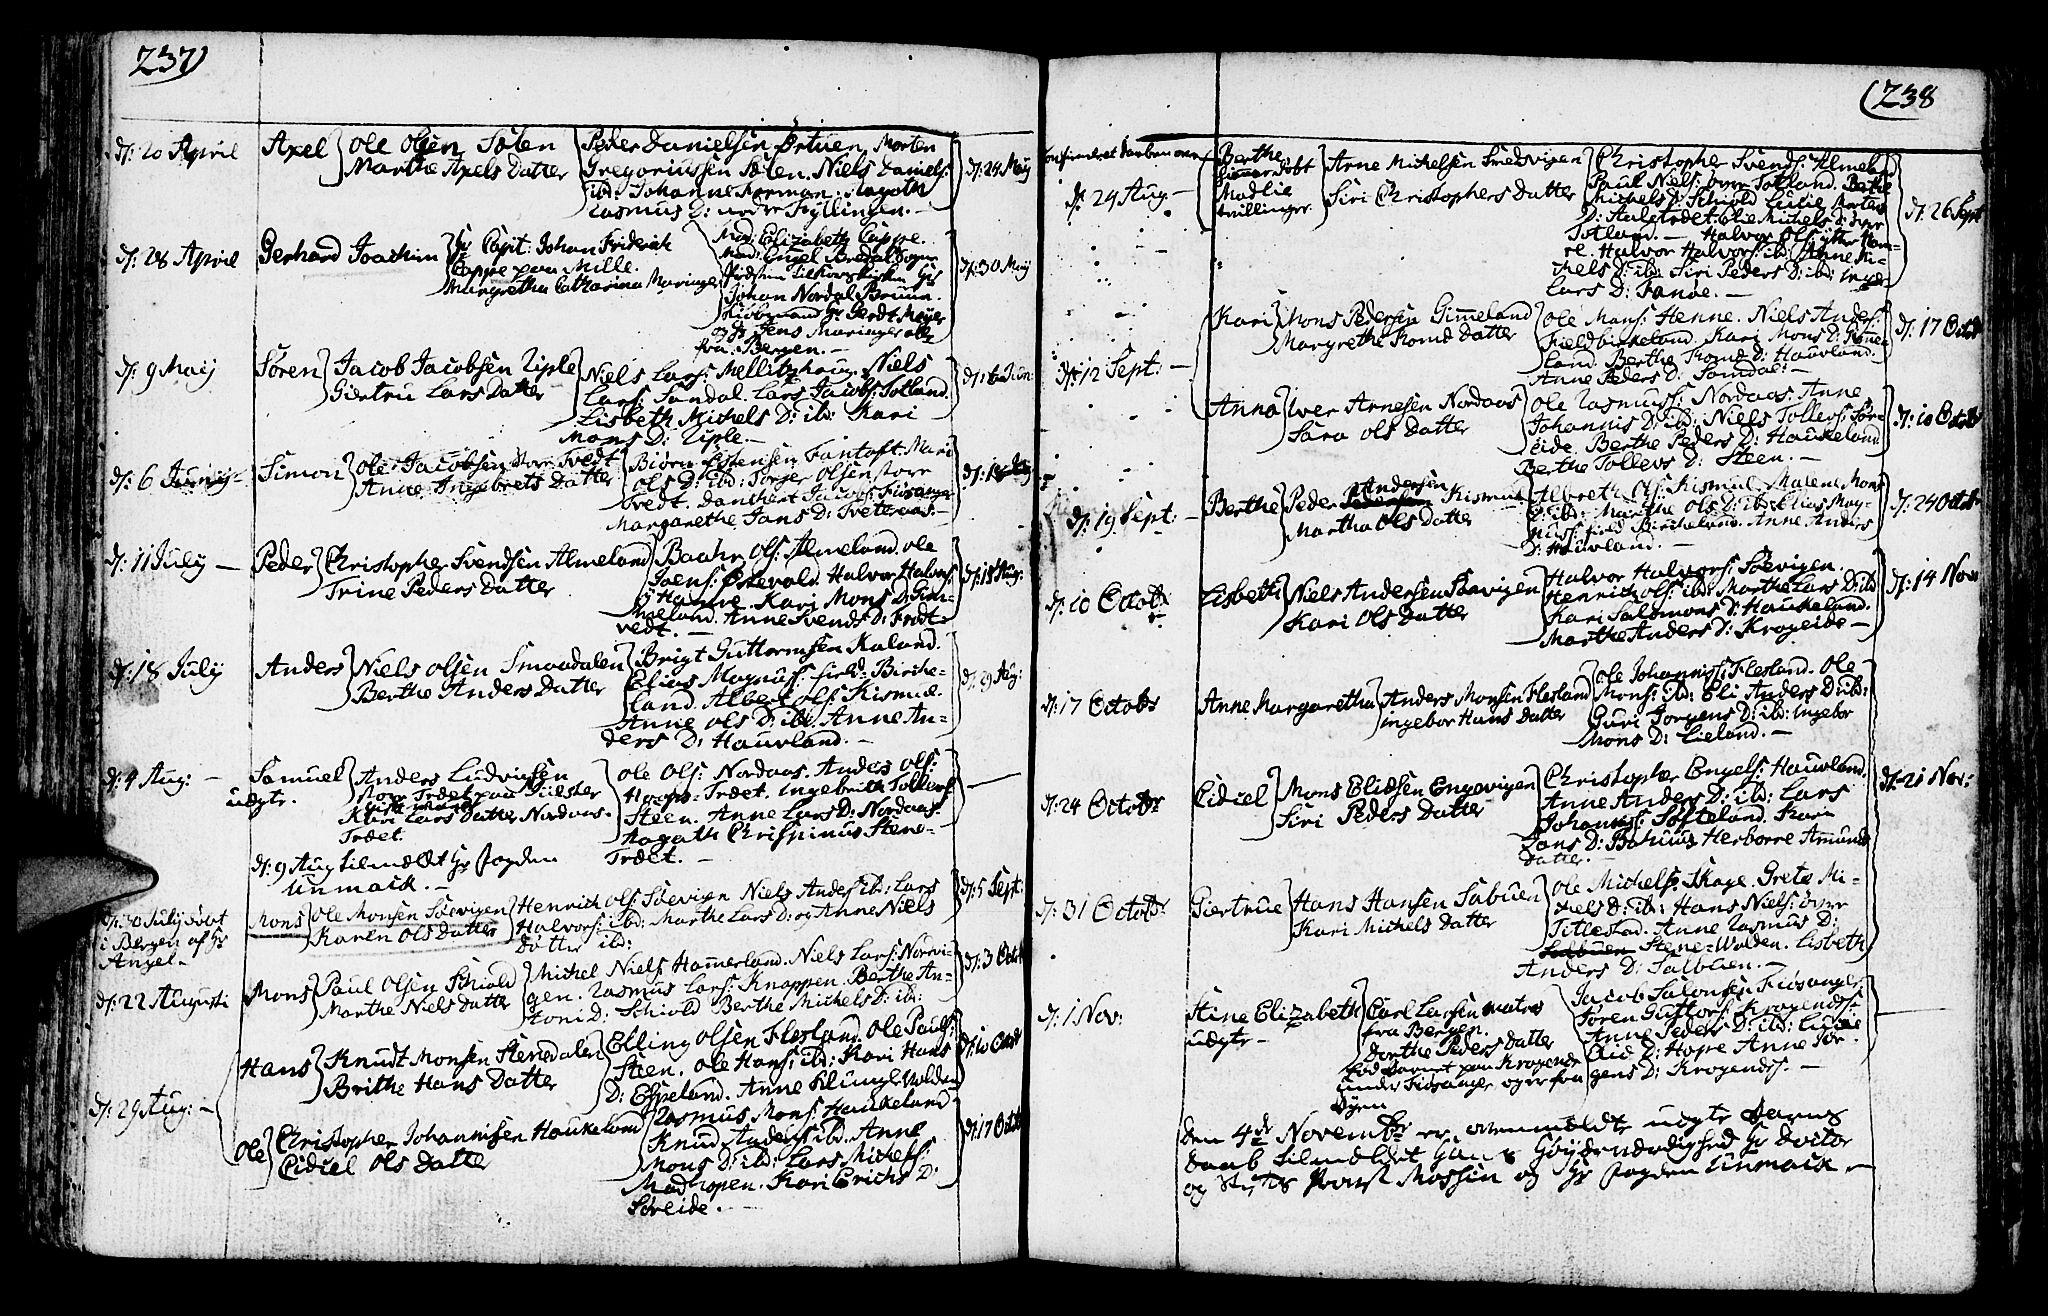 237)
d: 20 April
Axel
Ole Olsen Søten
Marthe Axels Datter
Peder Danielsen Ortuen, Morten
Gregoriussen Søten. Niels Daniels:
ibd: Johanne Korman: Angoth
Rasmus D: nedre Fyllingen. —
d: 24 Maij
d: 28 April
Gerhard Joachim
Hr Capit: Johan Friderich
Cappe paa Mille.
Margretha Catharina Maringer
Mad: Elizabeth Cappe.
Johan Nordal Bruun.
Kiøbmand Hr Gerdt Meyer
og Hr Jens Maringer alle
fra Bergen. —
d: 30 Maij
d: 9 Maij
Søren
Jacob Jacobsen Riple
Giertru Lars Datter
Niels Lars: Mellitzhaug. Niels
Lars: Sandal. Lars Jacobs: Totland.
Lisbeth Michels D: ib: Kari
Mons D: Riple. —
d: 6 Junij —
Simon
Ole Jacobsen Storr Tvedt
Anne Ingebrets Datter
Biørn Estensen Fantoft. Mari
Ols D: ib: Torger Olsen Storr
Tvedt. Danchert Jacobs: Fiøsanger
Margarethe Jans D: Tveteraas. —
d: 11 July —
Peder
Christopher Svendsen Almeland
Trine Peders Datter
Baahr Ols: Almeland. Ole
Joens: Østevold. Halvor Halvors:
y Hamre. Kari Mons D: Gim-
meland. Anne Svends D: Frøt-
vedt. —
d: 15 Aug:
d: 18 July
Anders
Niels Olsen Smaadalen
Berthe Anders Datter
Brigt Guttormsen Kaland.
Elias Magnuss: Field-Birche-
land. Albert Ols: Kismul.
Anne Ols D: ib: Anne An-
ders D: Hauvland. —
d: 29 Aug:
d: 4 Aug: —
Samuel
udgtr.
Anders Ludvigsen
Kari Lars Datter Nordaas.
Trædet
Ole Ols: Nordaas. Anders Ols:
Hoops-Trædet. Ingebrith Tollers:
Steen. Anne Lars D: Nordaas.
Aagath Chrispinus Stene-
Trædet. —
d: 9 Aug tilmeldt Hr Fogden
Unmack. —
d: 30 July døbt
i Bergen af Hr
Angel. —
Mons
Ole Monsen Søevigen
Karen Ols Datter
Henrich Ols: Søevigen Niels Anders: ib: Lars
Halvors: ib: Marthe Lars D: og Anne Niels
Datter ib:
d: 5 Sept:
d: 22 Augusti
Mons
Paul Olsen Schiold
Marthe Niels Datter
Michel Niels: Hamerland. Niels Lars: Nørvi-
gen. Rasmus Lars: Knappen. Berthe An-
toni D: Schiold Berthe Michels D: ib:
d: 3 Octob
d: 29 Aug: —
Hans
Knudt Monsen Stenedalen
Brithe Hans Datter
Elling Olsen Flesland. Ole Pauls:
Steen. Ole Hans: ib: Kari Hans
D: Espeland. Anne Klungl Wolden
d: 10 Octob
Ole
Christopher Johannisen Haukeland
Cidcel Ols Datter
Rasmus Mons: Haukeland
Knud Anders: ib. Anne
Mons D: ib: Lars Michels:
Madhopen. Kari Erichs D:
Søreide. —
d: 17 Octob
(238
d: 24 Aug —
Berthe
Madlie
trillinger
Arne Michelsen Smedvigen
Siri Christophers Datter
Christopher Svends: Almeland
Paul Niels: øvre Totland. Berthe
Michels D: Schiold Lucie Mortens
Totland. — Halvor Ols: ytter Ham-
re. Halvor Halvors: ib: Anne Mi-
chels D: ib: Siri Peders D: ib: Inger
Lars D: Fanøe. —
d: 26 Sept
d: 12 Sept: —
Kari
Mons Pedersen Gimmeland
Margrethe Komd Datter
Ole Mons: Henne. Niels Anders:
Fieldbirkeland. Kari Mons D: Gimme
land. Berthe Komd D: Hauvland.
Anne Peders D: Samdal: —
d: 17 Octob
Anna
Iver Arnesen Nordaas
Sara Ols Datter
Ole Rasmuss: Nordaas. Anne
Johannis D: ib: Niels Tollevs: Sør-
eide. Berthe Peders D: Haukeland
Berthe Tollevs D: Steen. —
d: 10 Octob
d: 19 Sept: —
Berthe
Peder Andersen Kismul
Martha Ols Datter
Albreth Ols: Kismul. Malene Mons
D: ib: Marthe Ols D: ib: Elias Mag-
nuss: Field Bircheland. Anne Anders
D: Hauvland. —
d: 24 Octob
d: 10 Octobr
Lisbeth
Niels Andersen Søevigen
Kari Ols Datter
Halvor Halvors: Søevigen.
Henrich Ols: ib: Marthe Lars D: ib
Kari Salomons D: Haukeland.
Marthe Anders D: Krogeide —
d: 14 Nov
d: 17 Octobr
Anne Margaretha
Anders Monsen Flesland
Ingebor Hans Datter
Ole Johanniss: Flesland. Ole
Mons: ib: Eli Anders D: ib:
Guri Jørgens D: ib: Ingebor
Mons D: Lieland. —
d: 24 Octobr
Cidcel
Mons Eliæsen Engevigen
Siri Peders Datter
Christopher Engels: Hauvland.
Anne Anders D: ib: Lars
Johannis: Softeland. Kari
Jans D: Bahuus Herborre Amunds
Datter. —
d: 21 Nov:
d: 31 Octobr
Giertrue
Hans Hansen Salbuen
Kari Michels Datter
Ole Michels: Skage. Grete Mi-
chels D: ib: Hans Niels: øvre
Titlestad. Anne Rasmus D:
Stene-Wolden. Lisbeth
Anders D: Salbuen. —
d: 1 Nov:
Stine Elizabeth
udgtr —
Carl Larsen matros
fra Bergen.
Dorthe Peders Datter
fød Barnet paa Krogenæs
under Fiøsanger og er fra
Byen
Jacob Salomsen Fiøsanger
Søren Guttorms: Krogenæs.
Anne Peders D: ib: Lucie
Eid D: Hope Anne Jør-
gens D: Krogenæs. —
Den 4de Novembr er ommeldte udgtr Barns
daab tilmeldet Hans Høyærværdighed Hr Doctor
og Stifts Provst Mossin og Hr Fogden Unmack —